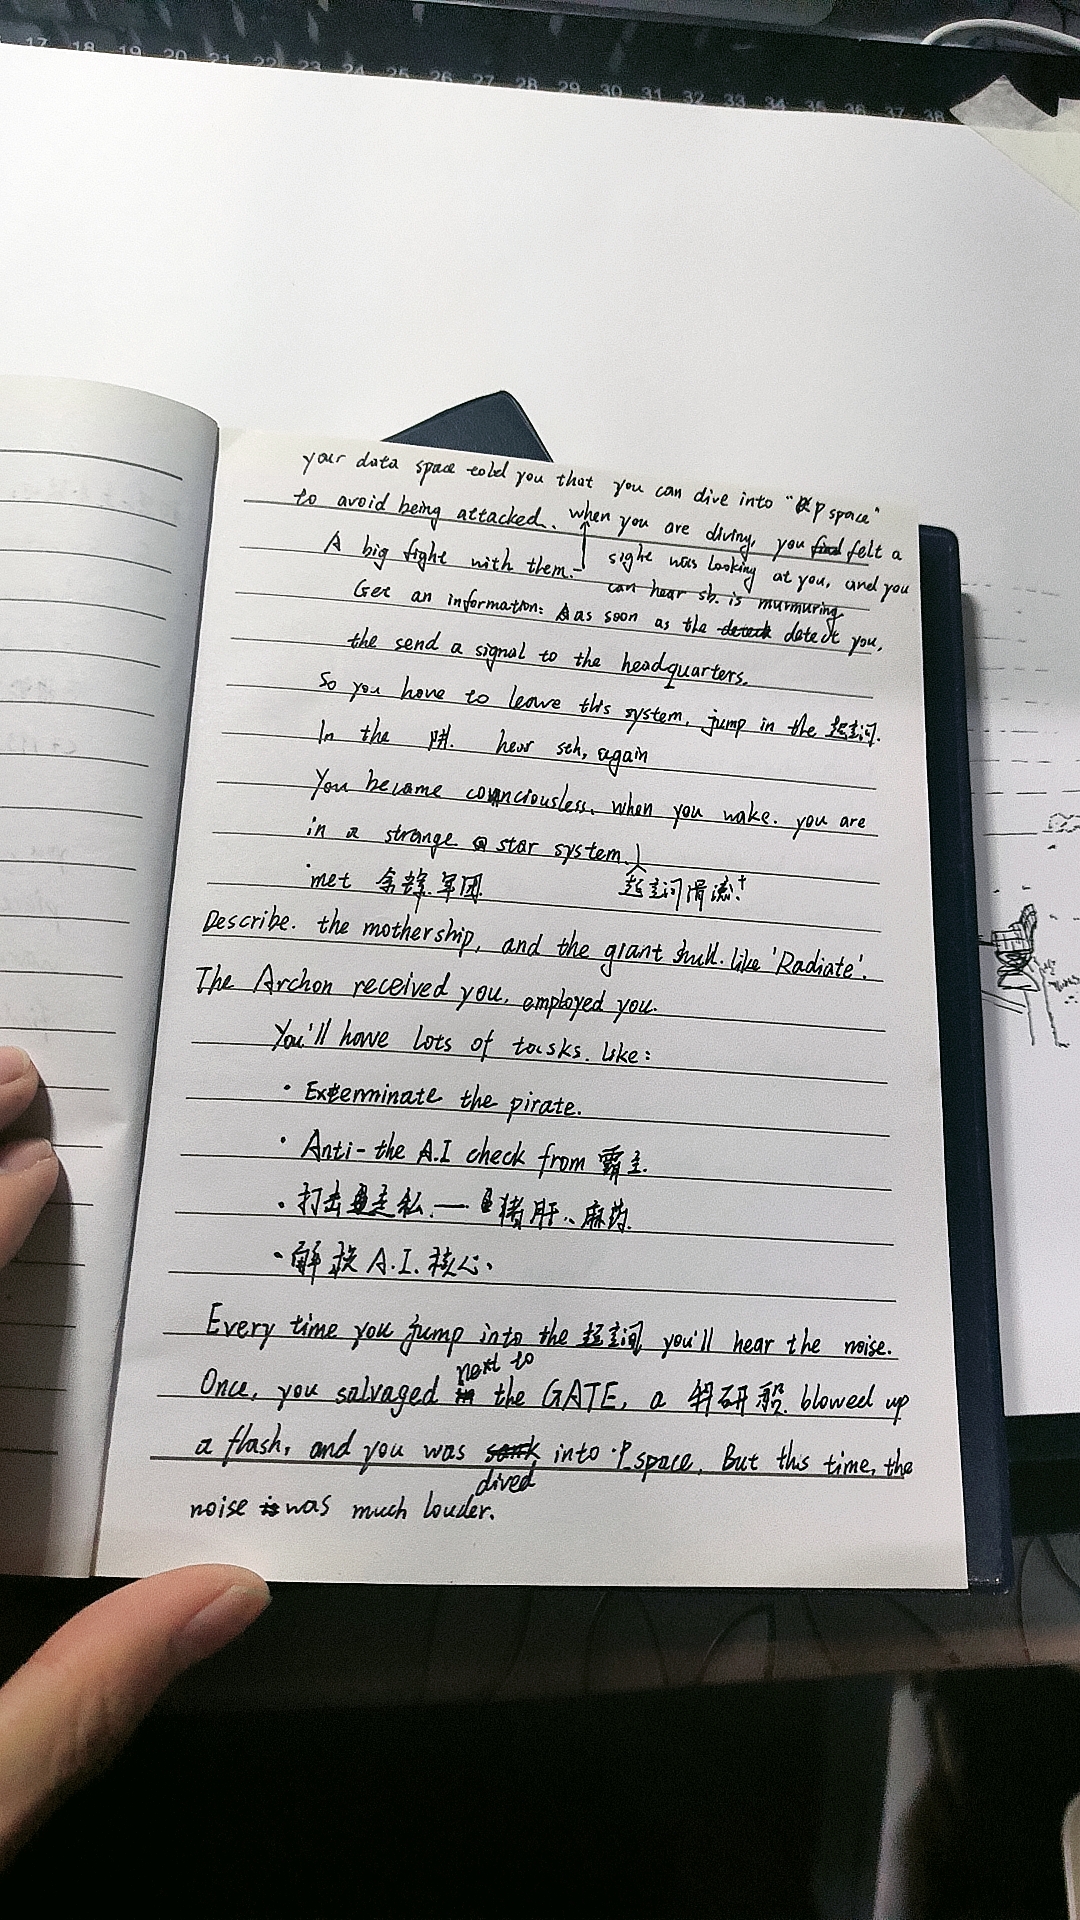 17 18 19 20 21 22 23 24 25 26 27 28 29 30 31 32 33 34 35 36 37 38
your data space told you that you can dive into "P space"
to avoid being attacked. when you are diving, you felt a
sight was looking at you, and you
can hear sb. is murmuring
A big fight with them.
Get an information: as soon as the detect you,
the send a signal to the headquarters.
So you have to leave this system, jump in the 超空间.
In the hear sth, again
You became conciousless. when you wake. you are
in a strange star system.
超空间滑流
met 余辉军团
Describe. the mothership, and the giant hull. like 'Radiate'.
The Archon received you, employed you.
You'll have lots of tasks. like:
· Exterminate the pirate.
· Anti-the A.I check from 霸主.
· 打击走私 — 猪肝、麻药.
· 解救 A.I. 核心.
Every time you jump into the 超空间, you'll hear the noise.
Once, you salvaged next to the GATE, a 科研船 blowed up
a flash, and you was dived into P space. But this time, the
noise was much louder.